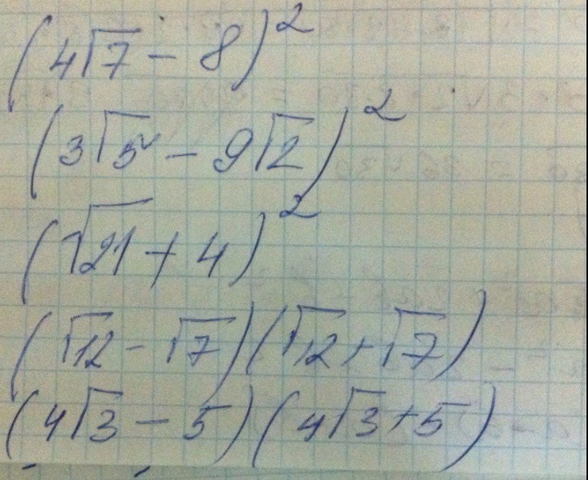 (4√7 − 8)²
(3√5 − 9√2)²
(√21 + 4)²
(√12 − √7)(√12 + √7)
(4√3 − 5)(4√3 + 5)